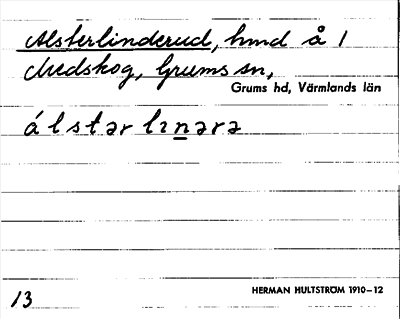 Alsterlinderud, hmd å 1
Medskog, Grums sn,
Grums hd, Värmlands län
álstər lɪnərə
HERMAN HULTSTRÖM 1910–12
13